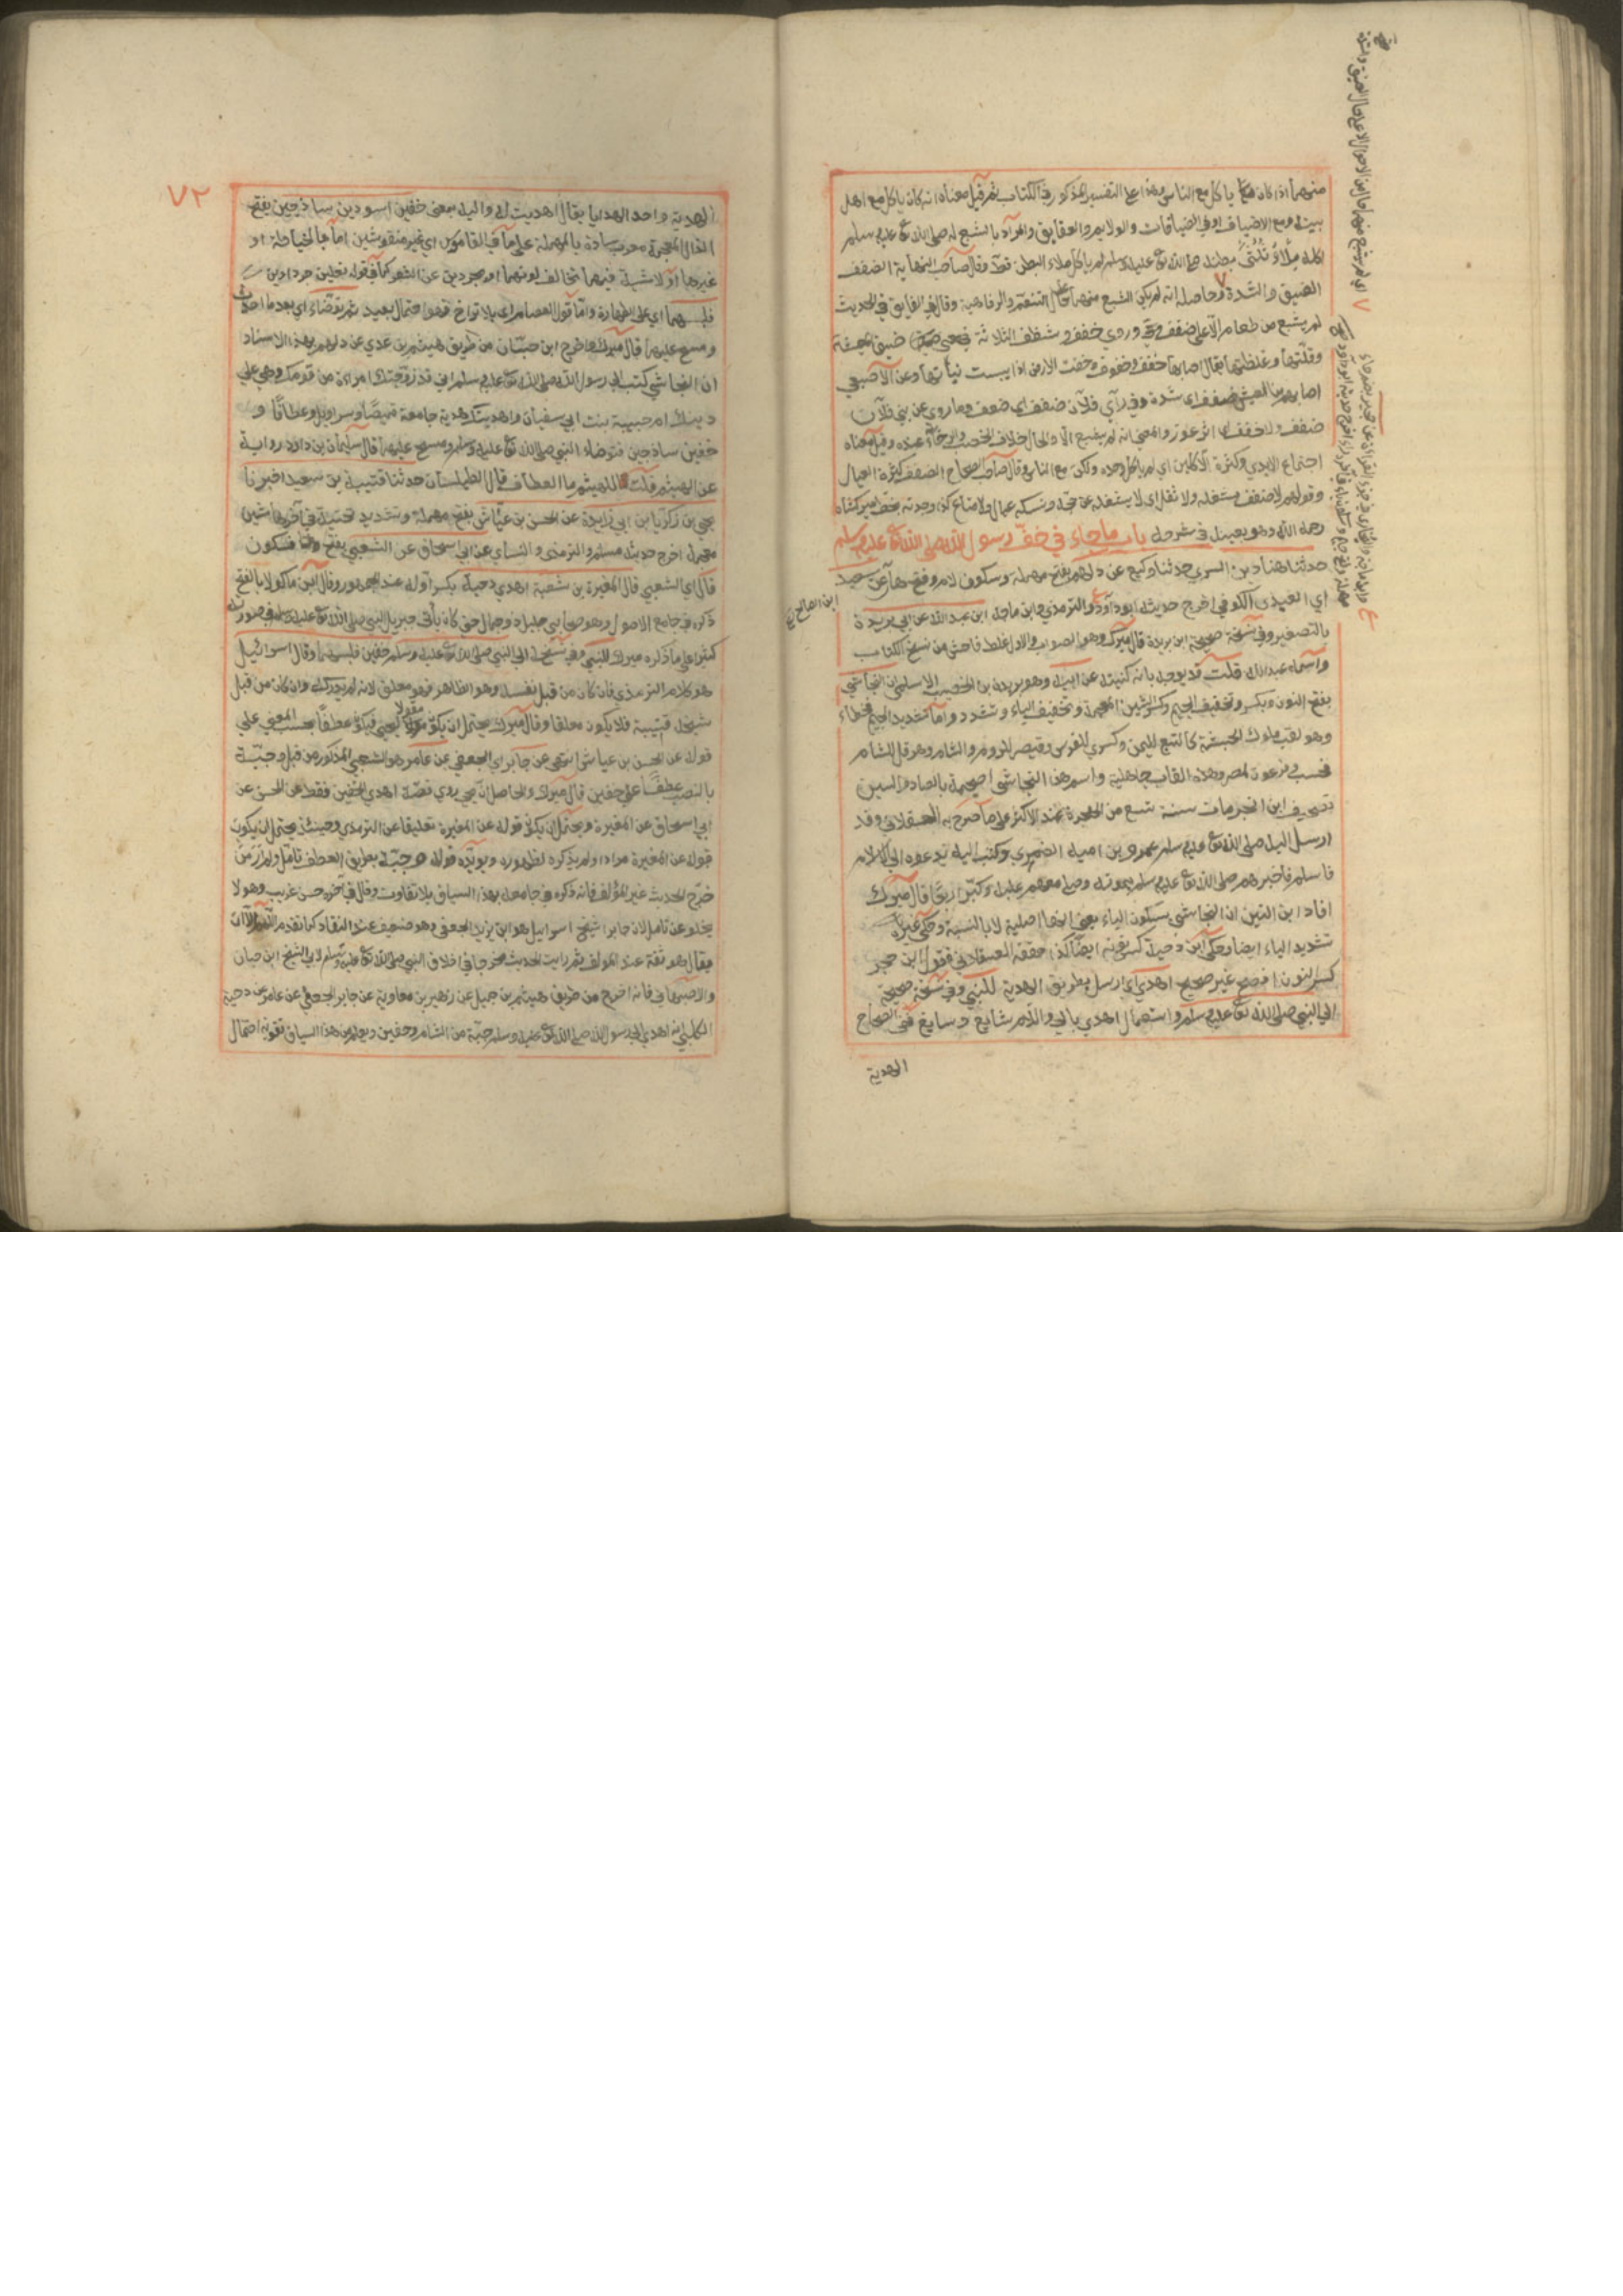 منهما اذا كان ياكل مع الناس وهذا على التفسير المذكور في الكتاب ثم قيل معناه انه كان ياكل مع اهل
بيته او مع الاضياف او في الضيافات والولايم والعقايق والمراد بالشبع له صلى الله تع عليه وسلم
اكله ملأ ثلثي بطنه صلى الله تع عليه وسلم لم ياكل ملاء البطن قط وقال صاحب النهاية الضفف
الضيق والشدة وحاصله انه لم يكن الشبع منهما على التنعم والرفاهية وقال في الفايق في الحديث
لم يشبع من طعام الا على ضفف وروي حفف وشظف الثلاثة في معنى ضيق المعيشة
وقلتها وغلظتها يقال اصابهم حفف وحفوف وحفت الارض اذا يبست نباتها وعن الاصمعي
اصابهم من العيش ضفف اي شدة وفي رأي فلان ضفف اي ضعف وما روي عن بني فلان
ضفف ولا حفف اي اثر عوز والمعنى انه لم يشبع الا والحال خلاف الخصب والرخاء عنده وقيل معناه
اجتماع الايدي وكثرة الآكلين اي لم ياكل وحده ولكن مع الناس وقال صاحب الصحاح الضفف كثرة العيال
وقولهم لا ضفف يشغله ولا ثقل اي لا يشغله عن حجه ونسكه عيال ولا متاع كذا وجدته بخط ميركشاه
رحمه الله وهو بعينه في شرحه باب ماجاء في خف رسول الله صلى الله تع عليه وسلم
حدثنا هناد بن السري حدثنا وكيع عن دلهم بفتح مهملة وسكون لام وفتح هاء عن حجير
ابن الصالح
اي العبدي الكوفي اخرج حديثه ابوداود والترمذي وابن ماجه ابن عبد الله عن ابي بريدة
بالتصغير وفي نسخة صحيحة ابن بريدة قال ميرك وهو الصواب والاول غلط فاحش من نسخ الكتاب
واسمه عبد الله قلت قد يوجه بانه كنيته عن ابيه وهو بريدة بن الحصيب الاسلمي ان النجاشي
بفتح النون ويكسر وتخفيف الجيم وكسر الشين المعجمة وتخفيف الياء وتشدد واما تشديد الجيم فخطاء
وهو لقب ملوك الحبشة كالتبع لليمن وكسرى للفرس وقيصر للروم والشام وهرقل للشام
فحسب وفرعون لمصر وهذه القاب جاهلية واسم هذا النجاشي اصحمة بالصاد والسين
تصحيف ابن ابجر مات سنة تسع من الهجرة عند الاكثر على ما صرح به العسقلاني وقد
ارسل اليه صلى الله تع عليه وسلم عمرو بن امية الضمري وكتب اليه يدعوه الى الاسلام
فاسلم فاخبرهم صلى الله تع عليه وسلم بموته وصلى معهم عليه وكبر اربعا قال ميرك
افاد ابن التين ان النجاشي بسكون الياء يعني انها اصلية لا ياء النسبة وحكى غيره
تشديد الياء ايضا وحكى ابن دحية كسر نونه ايضا كذا حققه العسقلاني فقول ابن حجر
كسر النون افصح غير صحيح اهدى اي ارسل بطريق الهدية للنبي وفي نسخة صحيحة
الى النبي صلى الله تع عليه وسلم واستعمال اهدى بالى واللام شايع وسايغ ففي الصحاح
الهدية
٧٢
الهدية واحد الهدايا يقال اهديت له واليه بمعنى خفين اسودين ساذجين بفتح
الذال المعجمة معرب ساده بالمهملة على ما في القاموس اي غير منقوشين اما بالخياطة او
غيرها او لا شية فيهما تخالف لونهما او مجردين عن الشعر كما في قوله نعلين جرداوين
فلبسهما اي على الطهارة واما قول العصام اي بلا تراخ فهو احتمال بعيد ثم توضاء اي بعد ما احدث
ومسح عليهما قال ميرك واخرج ابن حبان من طريق هيثم بن عدي عن دلهم بهذا الاسناد
ان النجاشي كتب الى رسول الله صلى الله تع عليه وسلم اني قد زوجتك امراءة من قومك وهي على
دينك ام حبيبة بنت ابي سفيان واهديتك هدية جامعة قميصا وسراويل وعطافا و
خفين ساذجين فتوضاء النبي صلى الله تع عليه وسلم ومسح عليهما قال سليمان بن داود رواية
عن الهيثم قلت للهيثم ما العطاف قال الطيلسان حدثنا قتيبة بن سعيد اخبرنا
يحيى بن زكريا بن ابي زايدة عن الحسن بن عياش بفتح مهملة وتشديد تحتية في آخرها شين
معجمة اخرج حديثه مسلم والترمذي والنساي عن ابي اسحاق عن الشعبي بفتح فسكون
قال اي الشعبي قال المغيرة بن شعبة اهدى دحية بكسر اوله عند الجمهور وقال ابن ماكولا بالفتح
ذكره في جامع الاصول وهو صحابي جليل ذو جمال حتى كان ياتي جبريل النبي صلى الله تع عليه وسلم في صورته
كثيرا على ما ذكره ميرك للنبي وفي نسخة الى النبي صلى الله تع عليه وسلم خفين فلبسهما وقال اسرائيل
هو كلام الترمذي فان كان من قبل نفسه وهو الظاهر فهو معلق لانه لم يدركه وان كان من قبل
شيخه قتيبة فلا يكون معلقا وقال ميرك يحتمل ان يكون مقولا ليحيى فيكون عطفا بحسب المعنى على
قوله عن الحسن بن عياش انتهى عن جابر اي الجعفي عن عامر هو الشعبي المذكور من قبل وجبة
بالنصب عطفا على خفين قال ميرك والحاصل ان يحيى روى قصة اهدى الخفين فقط عن الحسن عن
ابي اسحاق عن المغيرة ويحتمل ان يكون قوله عن المغيرة تعليقا عن الترمذي وحينئذ يحتمل ان يكون
قوله عن المغيرة مرادا ولم يذكره لظهوره ويويده قوله وجبة بطريق العطف تامل ولم ار من
خرج الحديث غير المؤلف فانه ذكره في جامعه بهذا السياق بلا تفاوت وقال في آخره حسن غريب وهو لا
يخلو عن تامل لان جابرا شيخ اسرائيل هو ابن يزيد الجعفي وهو ضعيف عند النقاد كما تقدم اللهم الا ان
يقال وهو ثقة عند المولف ثم رايت الحديث مخرجا في اخلاق النبي صلى الله تع عليه وسلم لابي الشيخ ابن حيان
والاصبهاني فانه اخرج من طريق هيثم بن جميل عن زهير بن معاوية عن جابر الجعفي عن عامر عن دحية
الكلبي انه اهدى الى رسول الله صلى الله تع عليه وسلم جبة من الشام وخفين ويعلم من هذا السياق تقوية احتمال